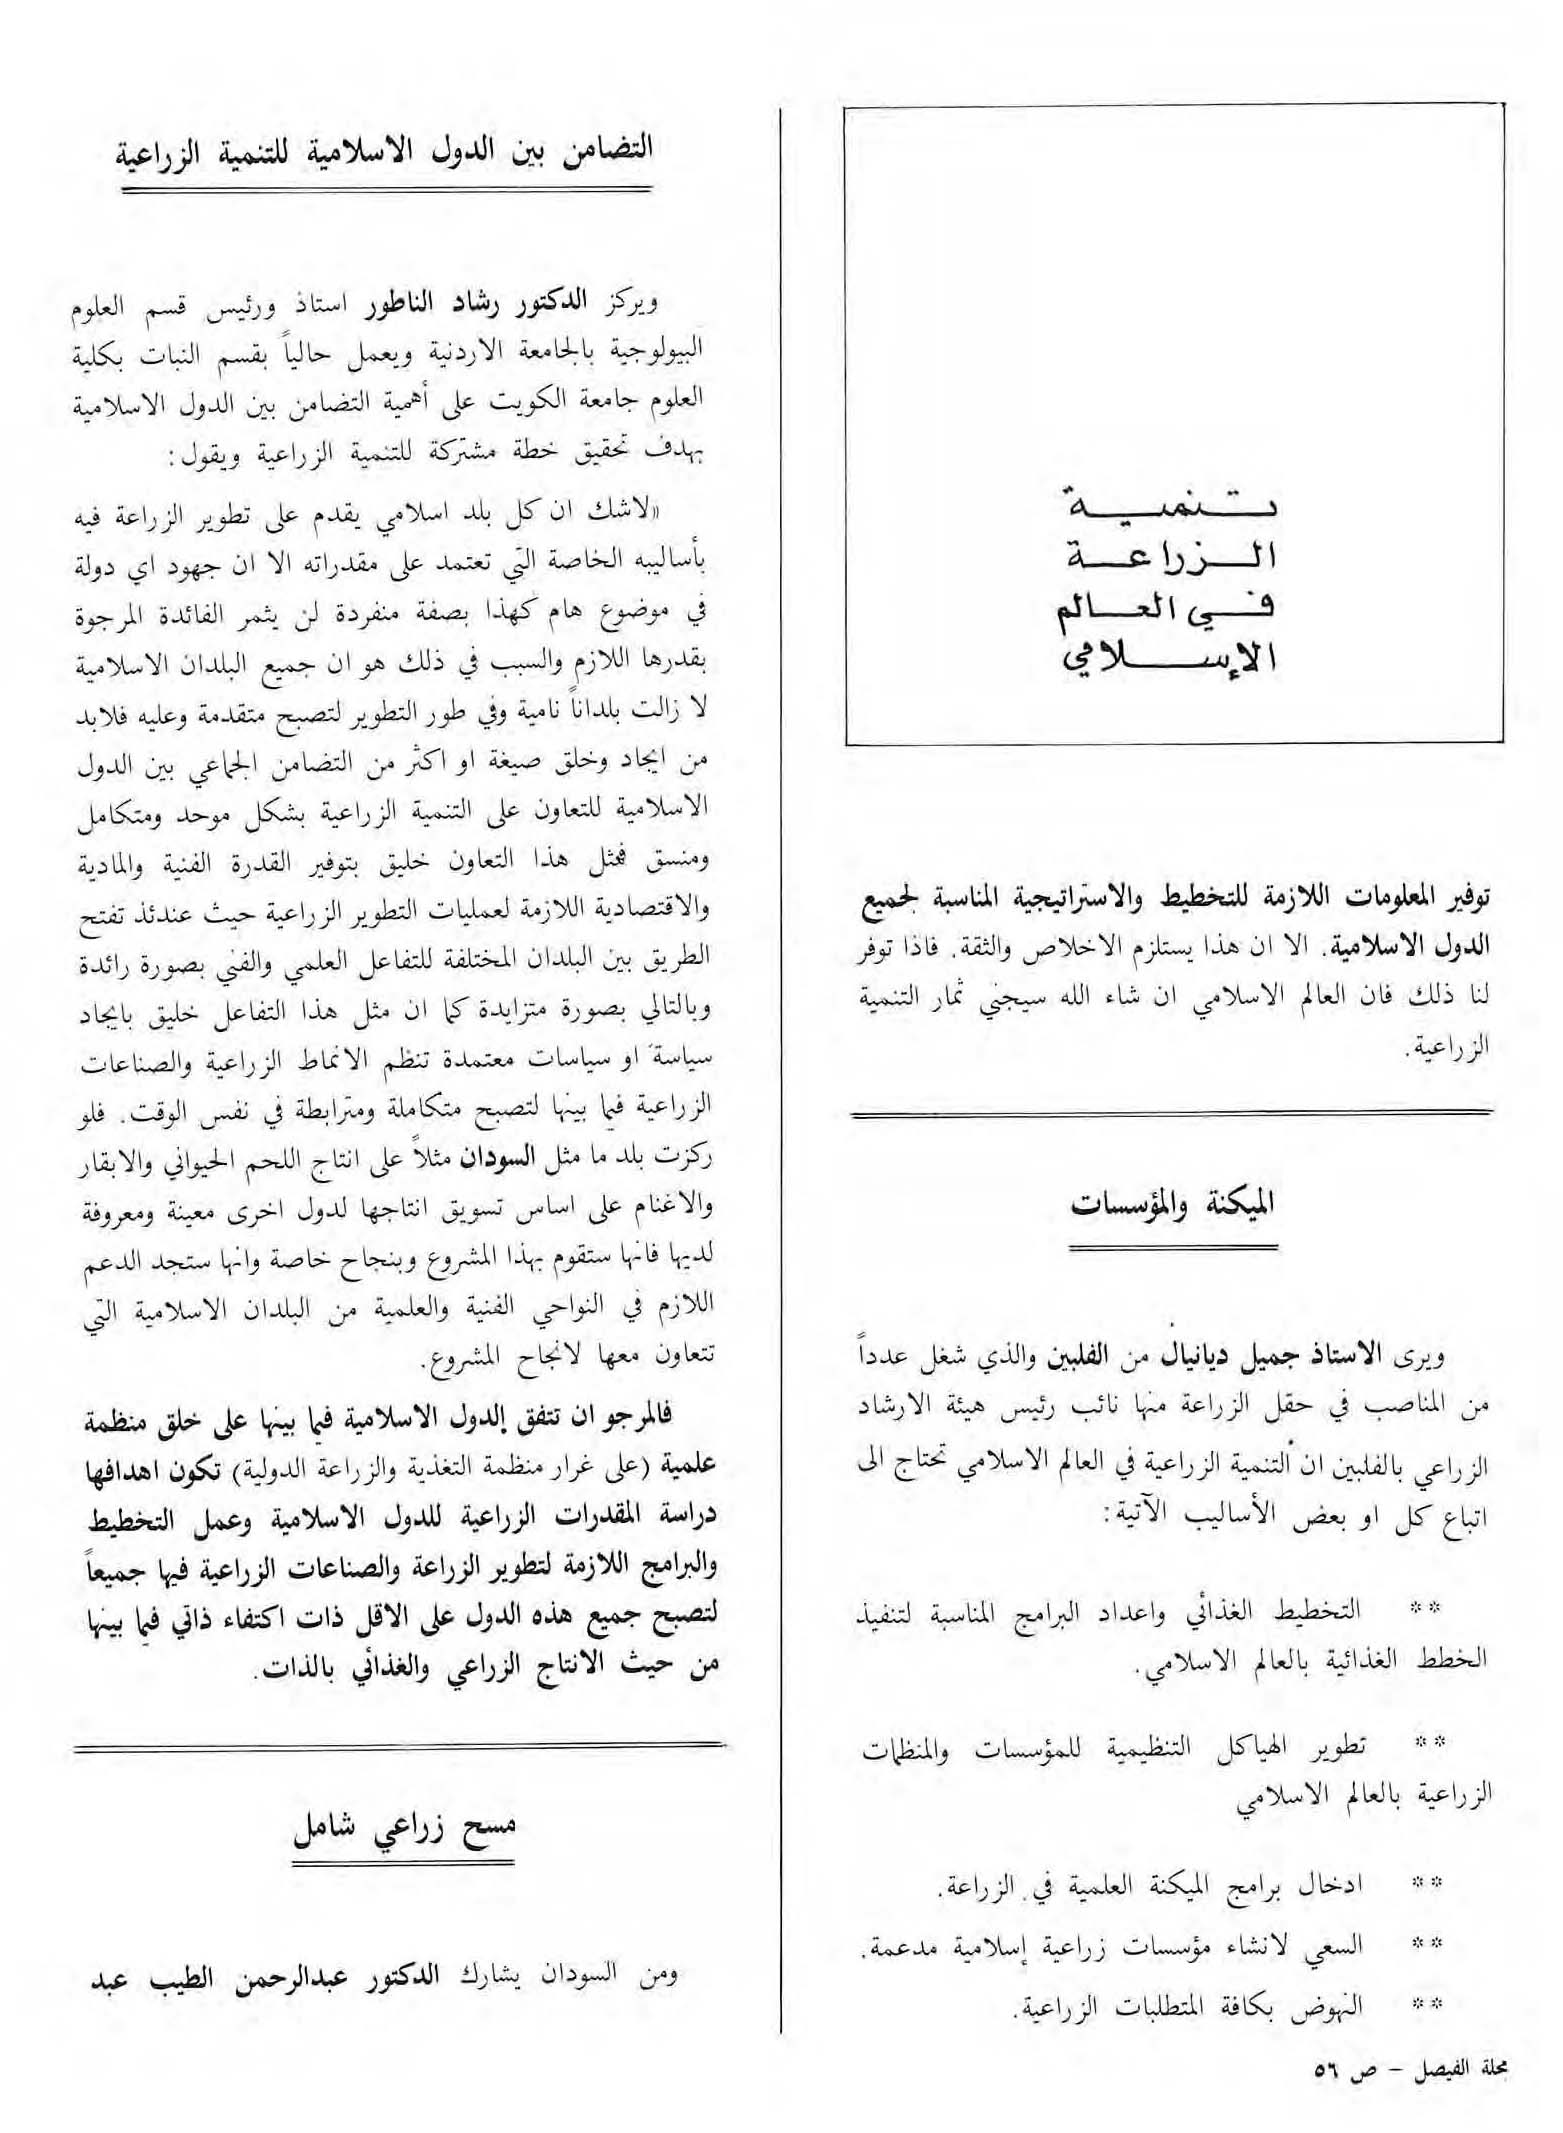 تنمية
الزراعة
في العالم
الإسلامي
توفير المعلومات اللازمة للتخطيط والاستراتيجية المناسبة لجميع
الدول الاسلامية. الا ان هذا يستلزم الاخلاص والثقة. فاذا توفر
لنا ذلك فان العالم الاسلامي ان شاء الله سيجني ثمار التنمية
الزراعية.
الميكنة والمؤسسات
ويرى الاستاذ جميل ديانيال من الفلبين والذي شغل عدداً
من المناصب في حقل الزراعة منها نائب رئيس هيئة الارشاد
الزراعي بالفلبين ان التنمية الزراعية في العالم الاسلامي تحتاج الى
اتباع كل او بعض الأساليب الآتية:
** التخطيط الغذائي واعداد البرامج المناسبة لتنفيذ
الخطط الغذائية بالعالم الاسلامي.
** تطوير الهياكل التنظيمية للمؤسسات والمنظمات
الزراعية بالعالم الاسلامي
** ادخال برامج الميكنة العلمية في الزراعة.
** السعي لانشاء مؤسسات زراعية إسلامية مدعمة.
** النهوض بكافة المتطلبات الزراعية.
التضامن بين الدول الاسلامية للتنمية الزراعية
ويركز الدكتور رشاد الناطور استاذ ورئيس قسم العلوم
البيولوجية بالجامعة الاردنية ويعمل حالياً بقسم النبات بكلية
العلوم جامعة الكويت على أهمية التضامن بين الدول الاسلامية
بهدف تحقيق خطة مشتركة للتنمية الزراعية ويقول:
«لاشك ان كل بلد اسلامي يقدم على تطوير الزراعة فيه
بأساليبه الخاصة التي تعتمد على مقدراته الا ان جهود اي دولة
في موضوع هام كهذا بصفة منفردة لن يثمر الفائدة المرجوة
بقدرها اللازم والسبب في ذلك هو ان جميع البلدان الاسلامية
لا زالت بلداناً نامية وفي طور التطوير لتصبح متقدمة وعليه فلابد
من ايجاد وخلق صيغة او اكثر من التضامن الجماعي بين الدول
الاسلامية للتعاون على التنمية الزراعية بشكل موحد ومتكامل
ومنسق فمثل هذا التعاون خليق بتوفير القدرة الفنية والمادية
والاقتصادية اللازمة لعمليات التطوير الزراعية حيث عندئذ تفتح
الطريق بين البلدان المختلفة للتفاعل العلمي والفني بصورة رائدة
وبالتالي بصورة متزايدة كما ان مثل هذا التفاعل خليق بايجاد
سياسة او سياسات معتمدة تنظم الانماط الزراعية والصناعات
الزراعية فيما بينها لتصبح متكاملة ومترابطة في نفس الوقت. فلو
ركزت بلد ما مثل السودان مثلاً على انتاج اللحم الحيواني والابقار
والاغنام على اساس تسويق انتاجها لدول اخرى معينة ومعروفة
لديها فانها ستقوم بهذا المشروع وبنجاح خاصة وانها ستجد الدعم
اللازم في النواحي الفنية والعلمية من البلدان الاسلامية التي
تتعاون معها لانجاح المشروع.
فالمرجو ان تتفق الدول الاسلامية فيما بينها على خلق منظمة
علمية (على غرار منظمة التغذية والزراعة الدولية) تكون اهدافها
دراسة المقدرات الزراعية للدول الاسلامية وعمل التخطيط
والبرامج اللازمة لتطوير الزراعة والصناعات الزراعية فيها جميعاً
لتصبح جميع هذه الدول على الاقل ذات اكتفاء ذاتي فيما بينها
من حيث الانتاج الزراعي والغذائي بالذات.
مسح زراعي شامل
ومن السودان يشارك الدكتور عبدالرحمن الطيب عبد
مجلة الفيصل – ص ٥٦